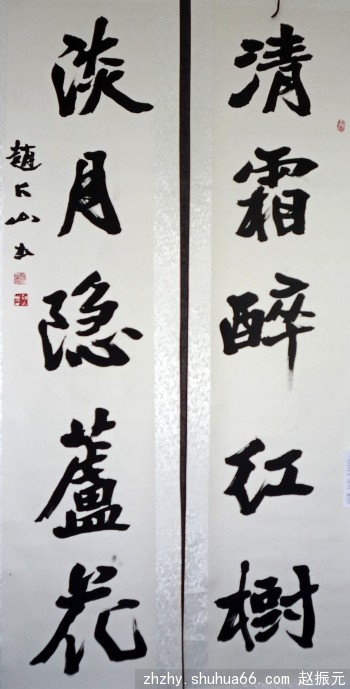 清霜醉红樹
淡月隐蘆花
zhzhy.shuhua66.com 赵振元